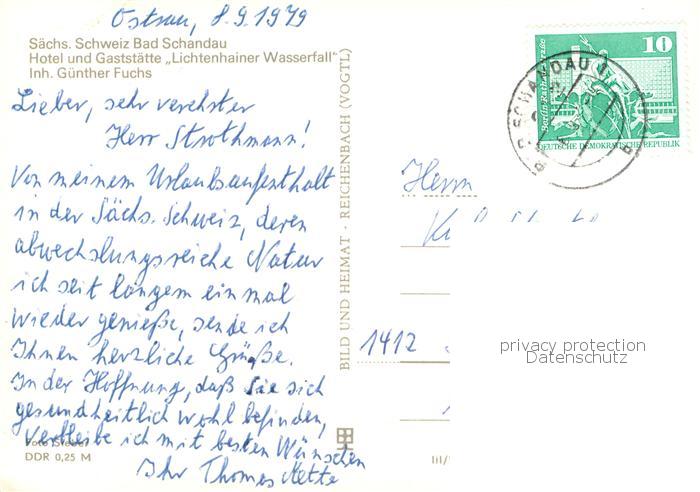 Ostrau, 8.9.1979
Sächs. Schweiz Bad Schandau
Hotel und Gaststätte „Lichtenhainer Wasserfall"
Inh. Günther Fuchs
Lieber, sehr verehrter
Herr Strothmann!
Von meinem Urlaubsaufenthalt
in der Sächs. Schweiz, deren
abwechslungsreiche Natur
ich seit langem einmal
wieder genieße, sende ich
Ihnen herzliche Grüße.
In der Hoffnung, daß Sie sich
gesundheitlich wohl befinden,
verbleibe ich mit besten Wünschen
Ihr Thomas Nette
DDR 0,25 M
BILD UND HEIMAT · REICHENBACH (VOGTL)
III/
10
Berlin-Rathausstraße
DEUTSCHE DEMOKRATISCHE REPUBLIK
SCHANDAU
Herrn
1412
privacy protection
Datenschutz